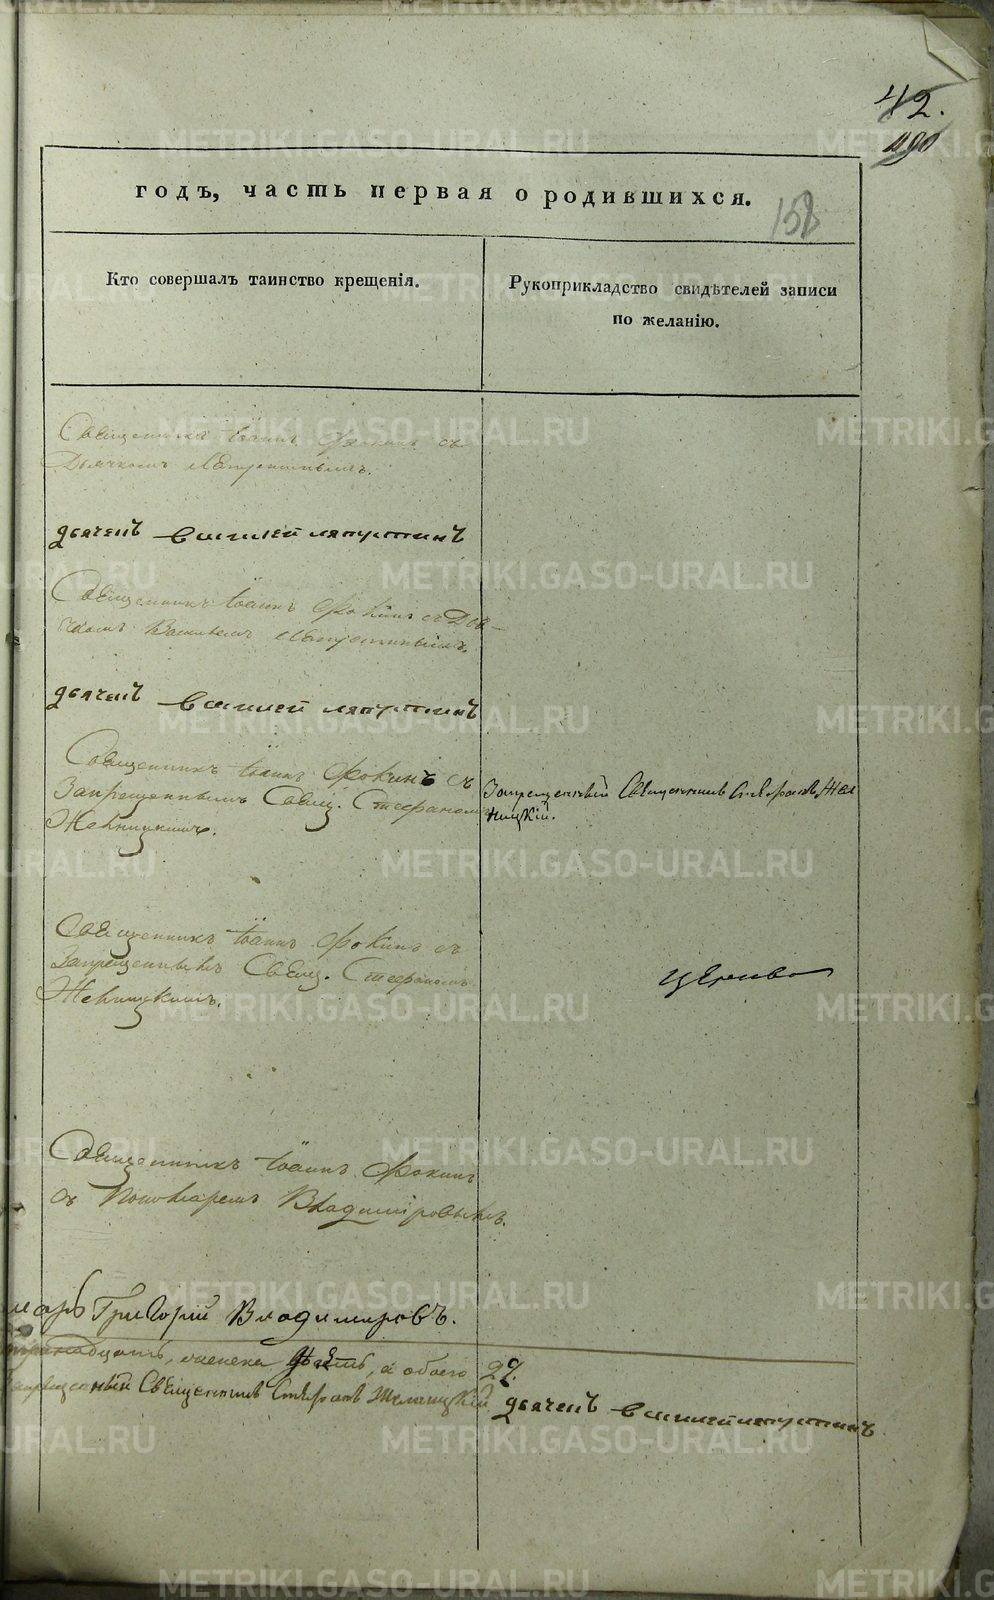 42.
190
годъ, часть первая о родившихся.
158
Кто совершалъ таинство крещенія.
Рукоприкладство свидѣтелей записи
по желанію.
Священникъ Іоаннъ Фокинъ съ
Дьячкомъ Лапустинымъ.
дьячекъ Василей лапустинъ
Священникъ Іоаннъ Фокинъ съ Дья-
чкомъ Василемъ Лапустинымъ.
дьячекъ Василей лапустинъ
Священникъ Іоаннъ Фокинъ съ
Запрещеннымъ Свящ. Стефаномъ
Желницкимъ.
Запрещенный Священникъ Стефанъ Жел
ницкій.
Священникъ Іоаннъ Фокинъ съ
Запрещеннымъ Свящ. Стефаномъ
Желницкимъ.
Священникъ Іоаннъ Фокинъ
съ Пономаремъ Владиміровымъ.
марь Григорій Владимировъ.
а обоего 29.
Священникъ Стефанъ Желницкій
дьячекъ Василей лапустинъ
METRIKI.GASO-URAL.RU